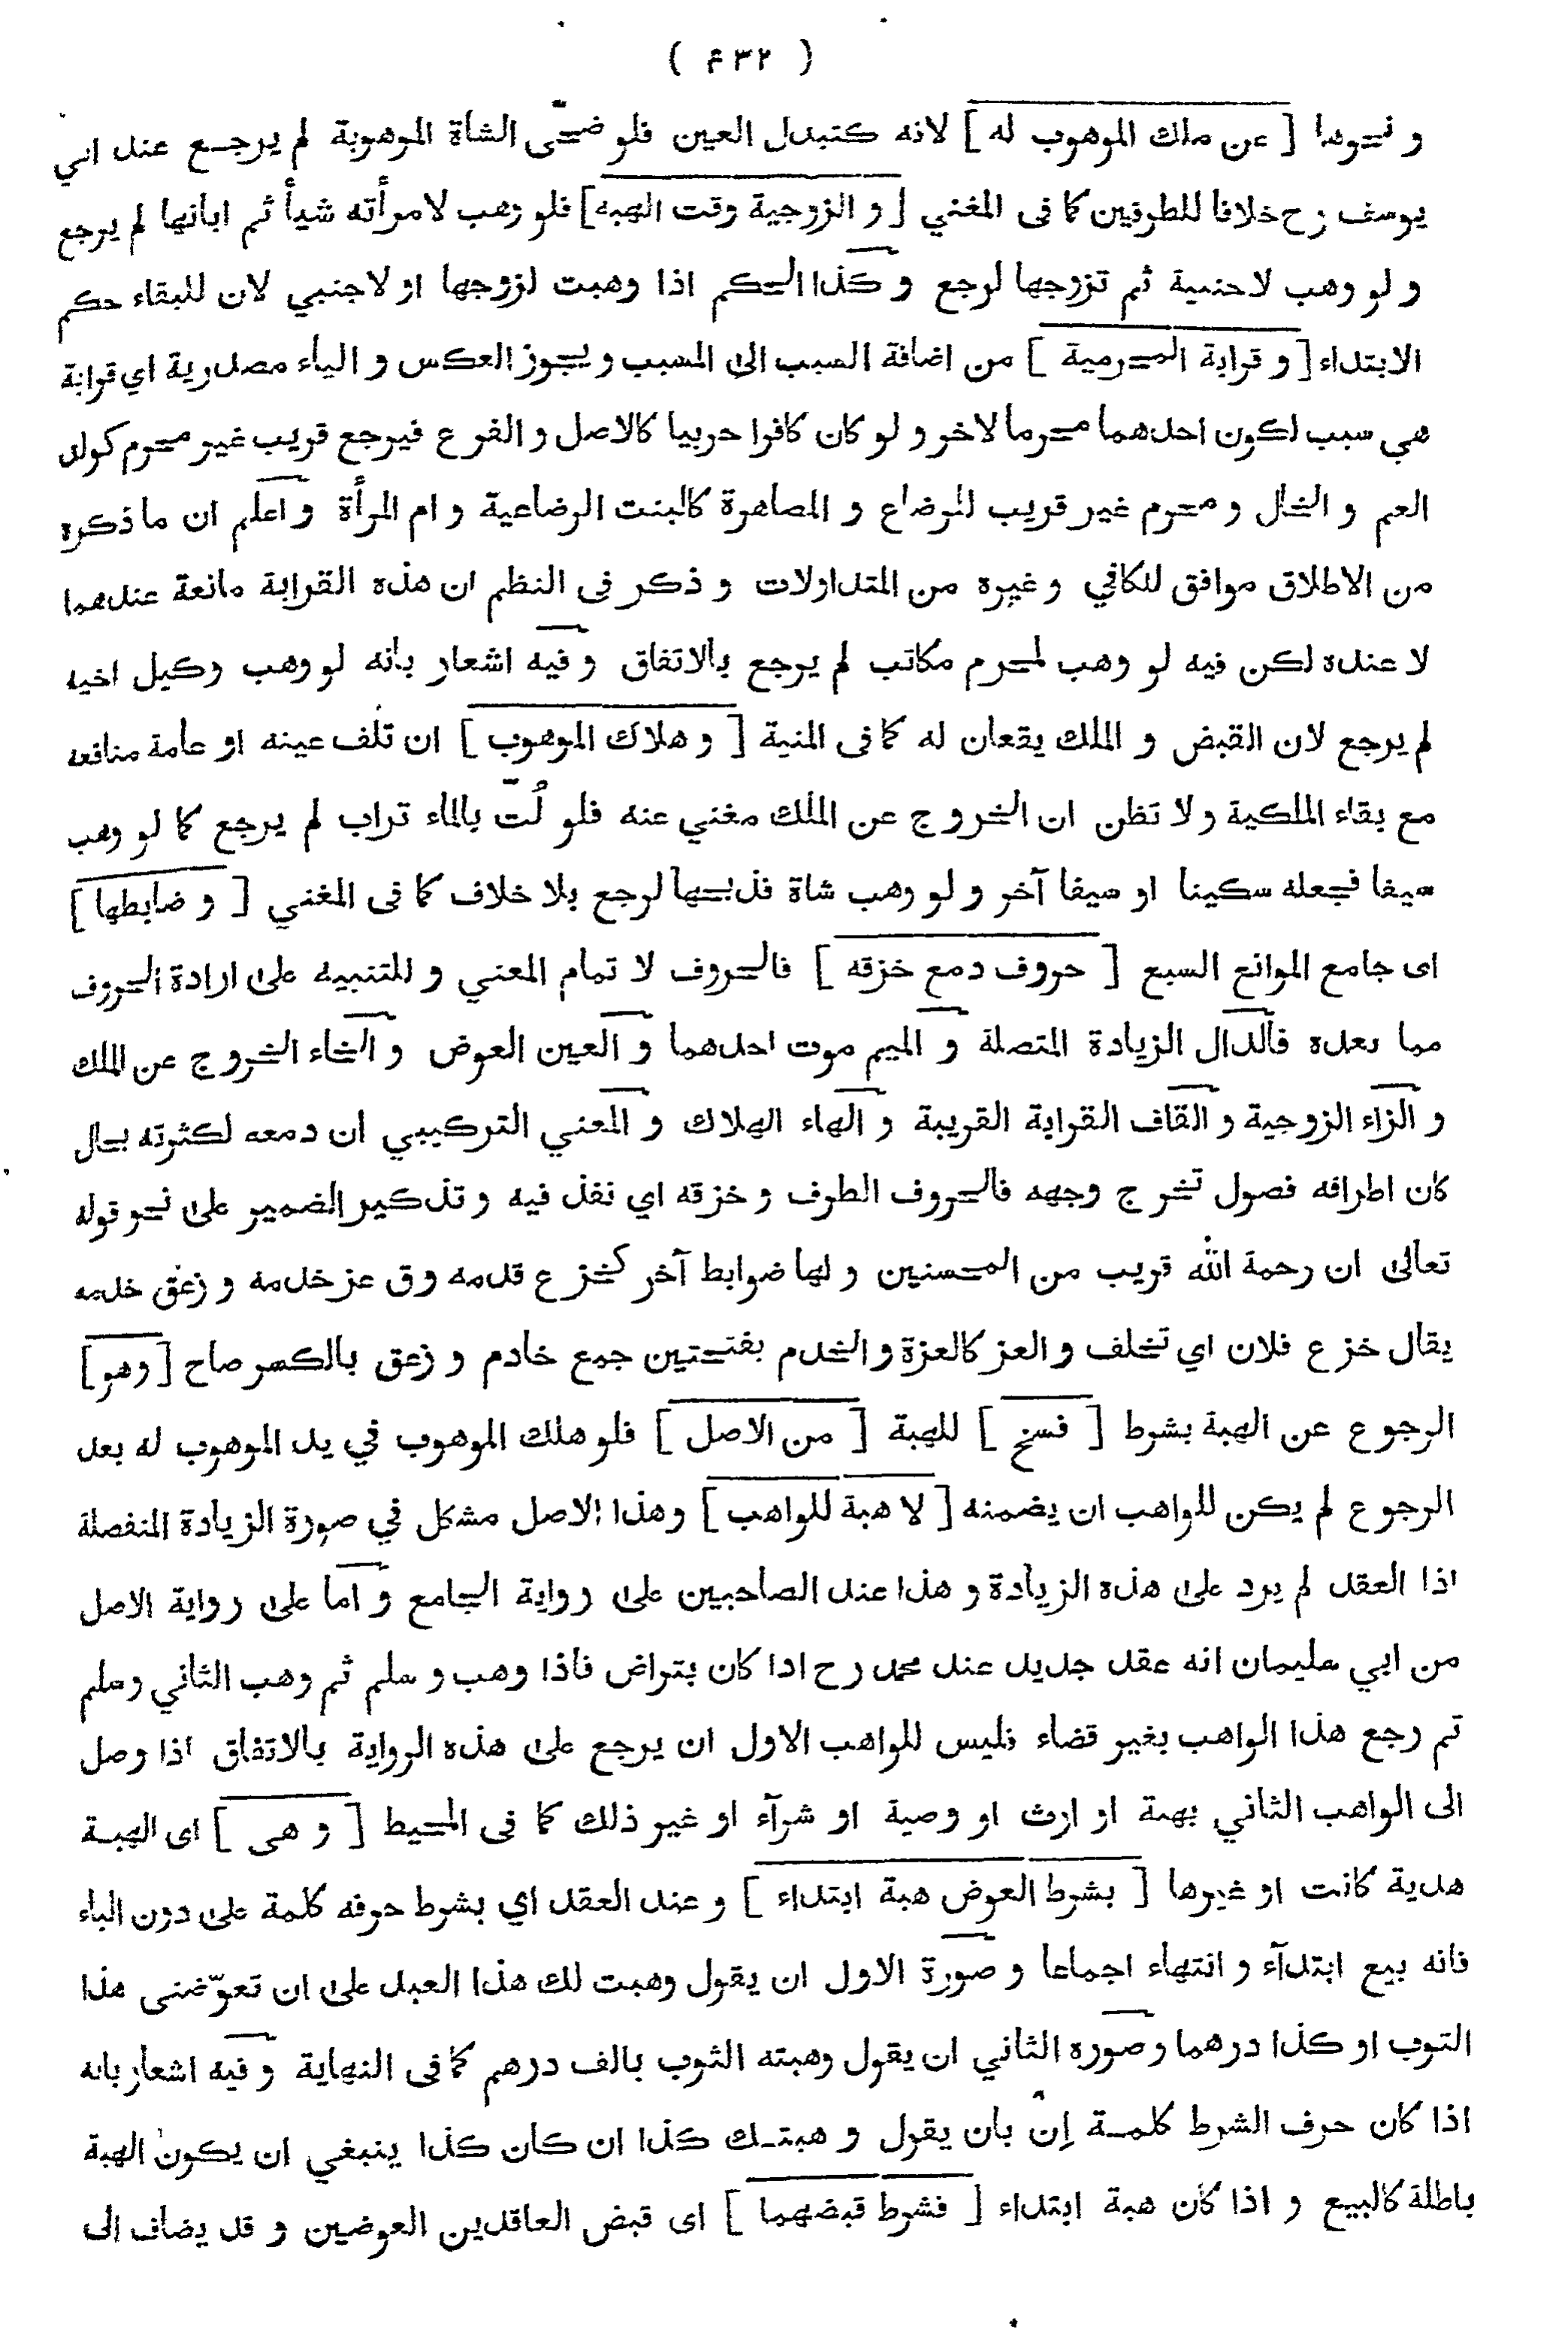 ( ۴۳۲ )
و نحوها [ عن ملك الموهوب له ] لانه كتبدل العين فلو ضحّى الشاة الموهوبة لم يرجــع عند ابي
يوسف رح خلافا للطرفين كما فى المغني [ و الزوجية وقت الهبة ] فلو وهب لامرأته شيأ ثم ابانها لم يرجع
و لو وهب لاجنبية ثم تزوجها لرجع و كذا الحكم اذا وهبت لزوجها او لاجنبي لان للبقاء حكم
الابتداء [ و قرابة المحرمية ] من اضافة السبب الى المسبب و يجوز العكس و الياء مصدرية اي قرابة
هي سبب لكون احدهما محرما لاخر و لو كان كافرا حربيا كالاصل و الفرع فيرجع قريب غير محرم كولد
العم و الخال و محرم غير قريب للرضاع و المصاهرة كالبنت الرضاعية و ام المرأة و اعلم ان ما ذكره
من الاطلاق موافق للكافي و غيره من المتداولات و ذكر فى النظم ان هذه القرابة مانعة عندهما
لا عنده لكن فيه لو وهب لمحرم مكاتب لم يرجع بالاتفاق و فيه اشعار بانه لو وهب وكيل اخيه
لم يرجع لان القبض و الملك يقعان له كما فى المنية [ و هلاك الموهوب ] ان تلف عينه او عامة منافعه
مع بقاء الملكية و لا تظن ان الخروج عن الملك مغني عنه فلو لُتّ بالماء تراب لم يرجع كما لو وهب
سيفا فجعله سكينا او سيفا آخر و لو وهب شاة فذبحها لرجع بلا خلاف كما فى المغني [ و ضابطها ]
اى جامع الموانع السبع [ حروف دمع خزقه ] فالحروف لا تمام المعني و للتنبيه على ارادة الحروف
مما بعده فالدال الزيادة المتصلة و الميم موت احدهما و العين العوض و الخاء الخروج عن الملك
و الزاء الزوجية و القاف القرابة القريبة و الهاء الهلاك و المعني التركيبي ان دمعه لكثرته بحال
كان اطرافه فصول تخرج وجهه فالحروف الطرف و خزقه اي نفذ فيه و تذكير الضمير على نحو قوله
تعالى ان رحمة الله قريب من المحسنين و لها ضوابط آخر كخزع قدمه وق عز خدمه و زعق خدمه
يقال خزع فلان اي تخلف و العز كالعزة و الخدم بفتحتين جمع خادم و زعق بالكسر صاح [ وهو ]
الرجوع عن الهبة بشرط [ فسخ ] للهبة [ من الاصل ] فلو هلك الموهوب في يد الموهوب له بعد
الرجوع لم يكن للواهب ان يضمنه [ لا هبة للواهب ] و هذا الاصل مشكل في صورة الزيادة المنفصلة
اذا العقد لم يرد على هذه الزيادة و هذا عند الصاحبين على رواية الجامع و اما على رواية الاصل
من ابي سليمان انه عقد جديد عند محمد رح اذا كان بتراض فاذا وهب و سلم ثم وهب الثاني وسلم
ثم رجع هذا الواهب بغير قضاء فليس للواهب الاول ان يرجع على هذه الرواية بالاتفاق اذا وصل
الى الواهب الثاني بهبة او ارث او وصية او شرآء او غير ذلك كما فى المحيط [ و هى ] اى الهبــة
هدية كانت او غيرها [ بشرط العوض هبة ابتداء ] و عند العقد اي بشرط حرفه كلمة على دون الباء
فانه بيع ابتدآء و انتهاء اجماعا و صورة الاول ان يقول وهبت لك هذا العبد على ان تعوّضنى هذا
الثوب او كذا درهما و صورة الثاني ان يقول وهبته الثوب بالف درهم كما فى النهاية و فيه اشعار بانه
اذا كان حرف الشرط كلمــة إن بان يقول و هبتــك كذا ان كان كذا ينبغي ان يكون الهبة
باطلة كالبيع و اذا كان هبة ابتداء [ فشرط قبضهما ] اى قبض العاقدين العوضين و قد يضاف الى